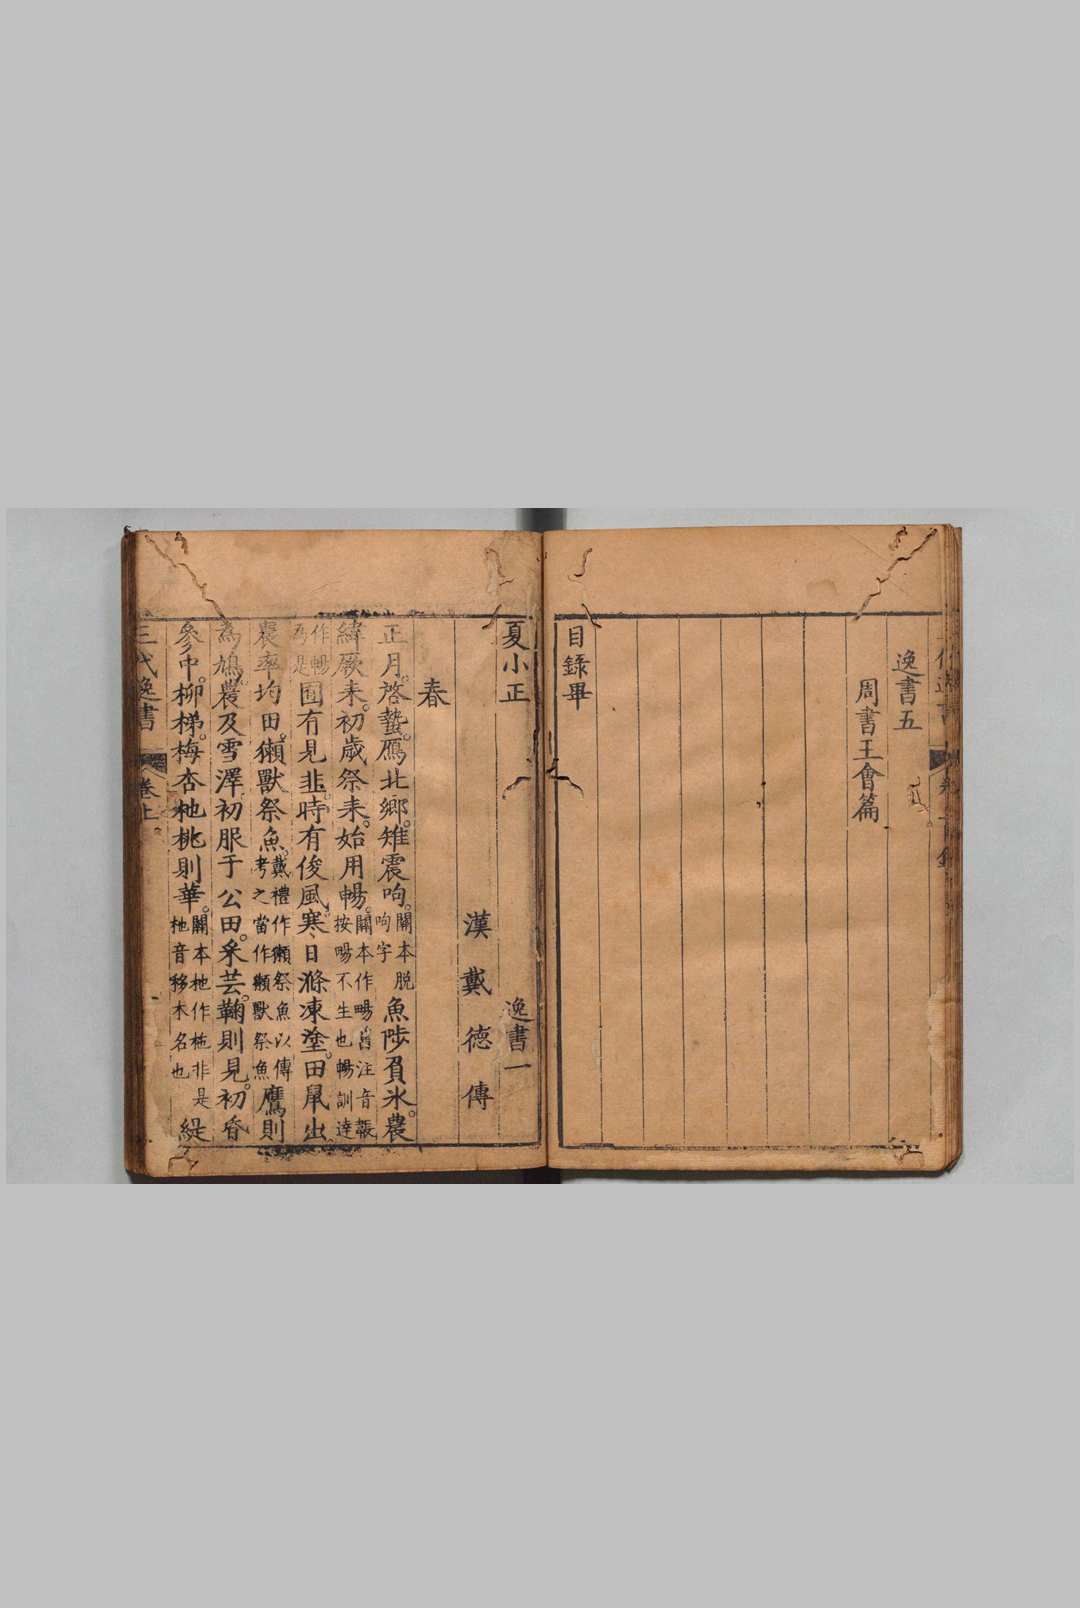 逸書五
周書王會篇
目錄畢
夏小正 逸書一
漢戴德傳
春
正月啓蟄。鴈北鄉。雉震呴。關本脱呴字 魚陟負氷。農
緯厥耒。初歲祭耒。始用暢。關本作暘舊注音䩨按暘不生也暢訓達
作暢為是 囿有見韭。時有俊風。寒日滌凍塗。田鼠出。
農率均田。獺獸祭魚。戴禮作獺祭魚以傳考之當作獺獸祭魚 鷹則
為鳩。農及雪澤。初服于公田。采芸。鞠則見。初昏
參中。柳梯。梅杏杝桃則華。關本杝作柂非是杝音移木名也 緹
三代逸書 卷上